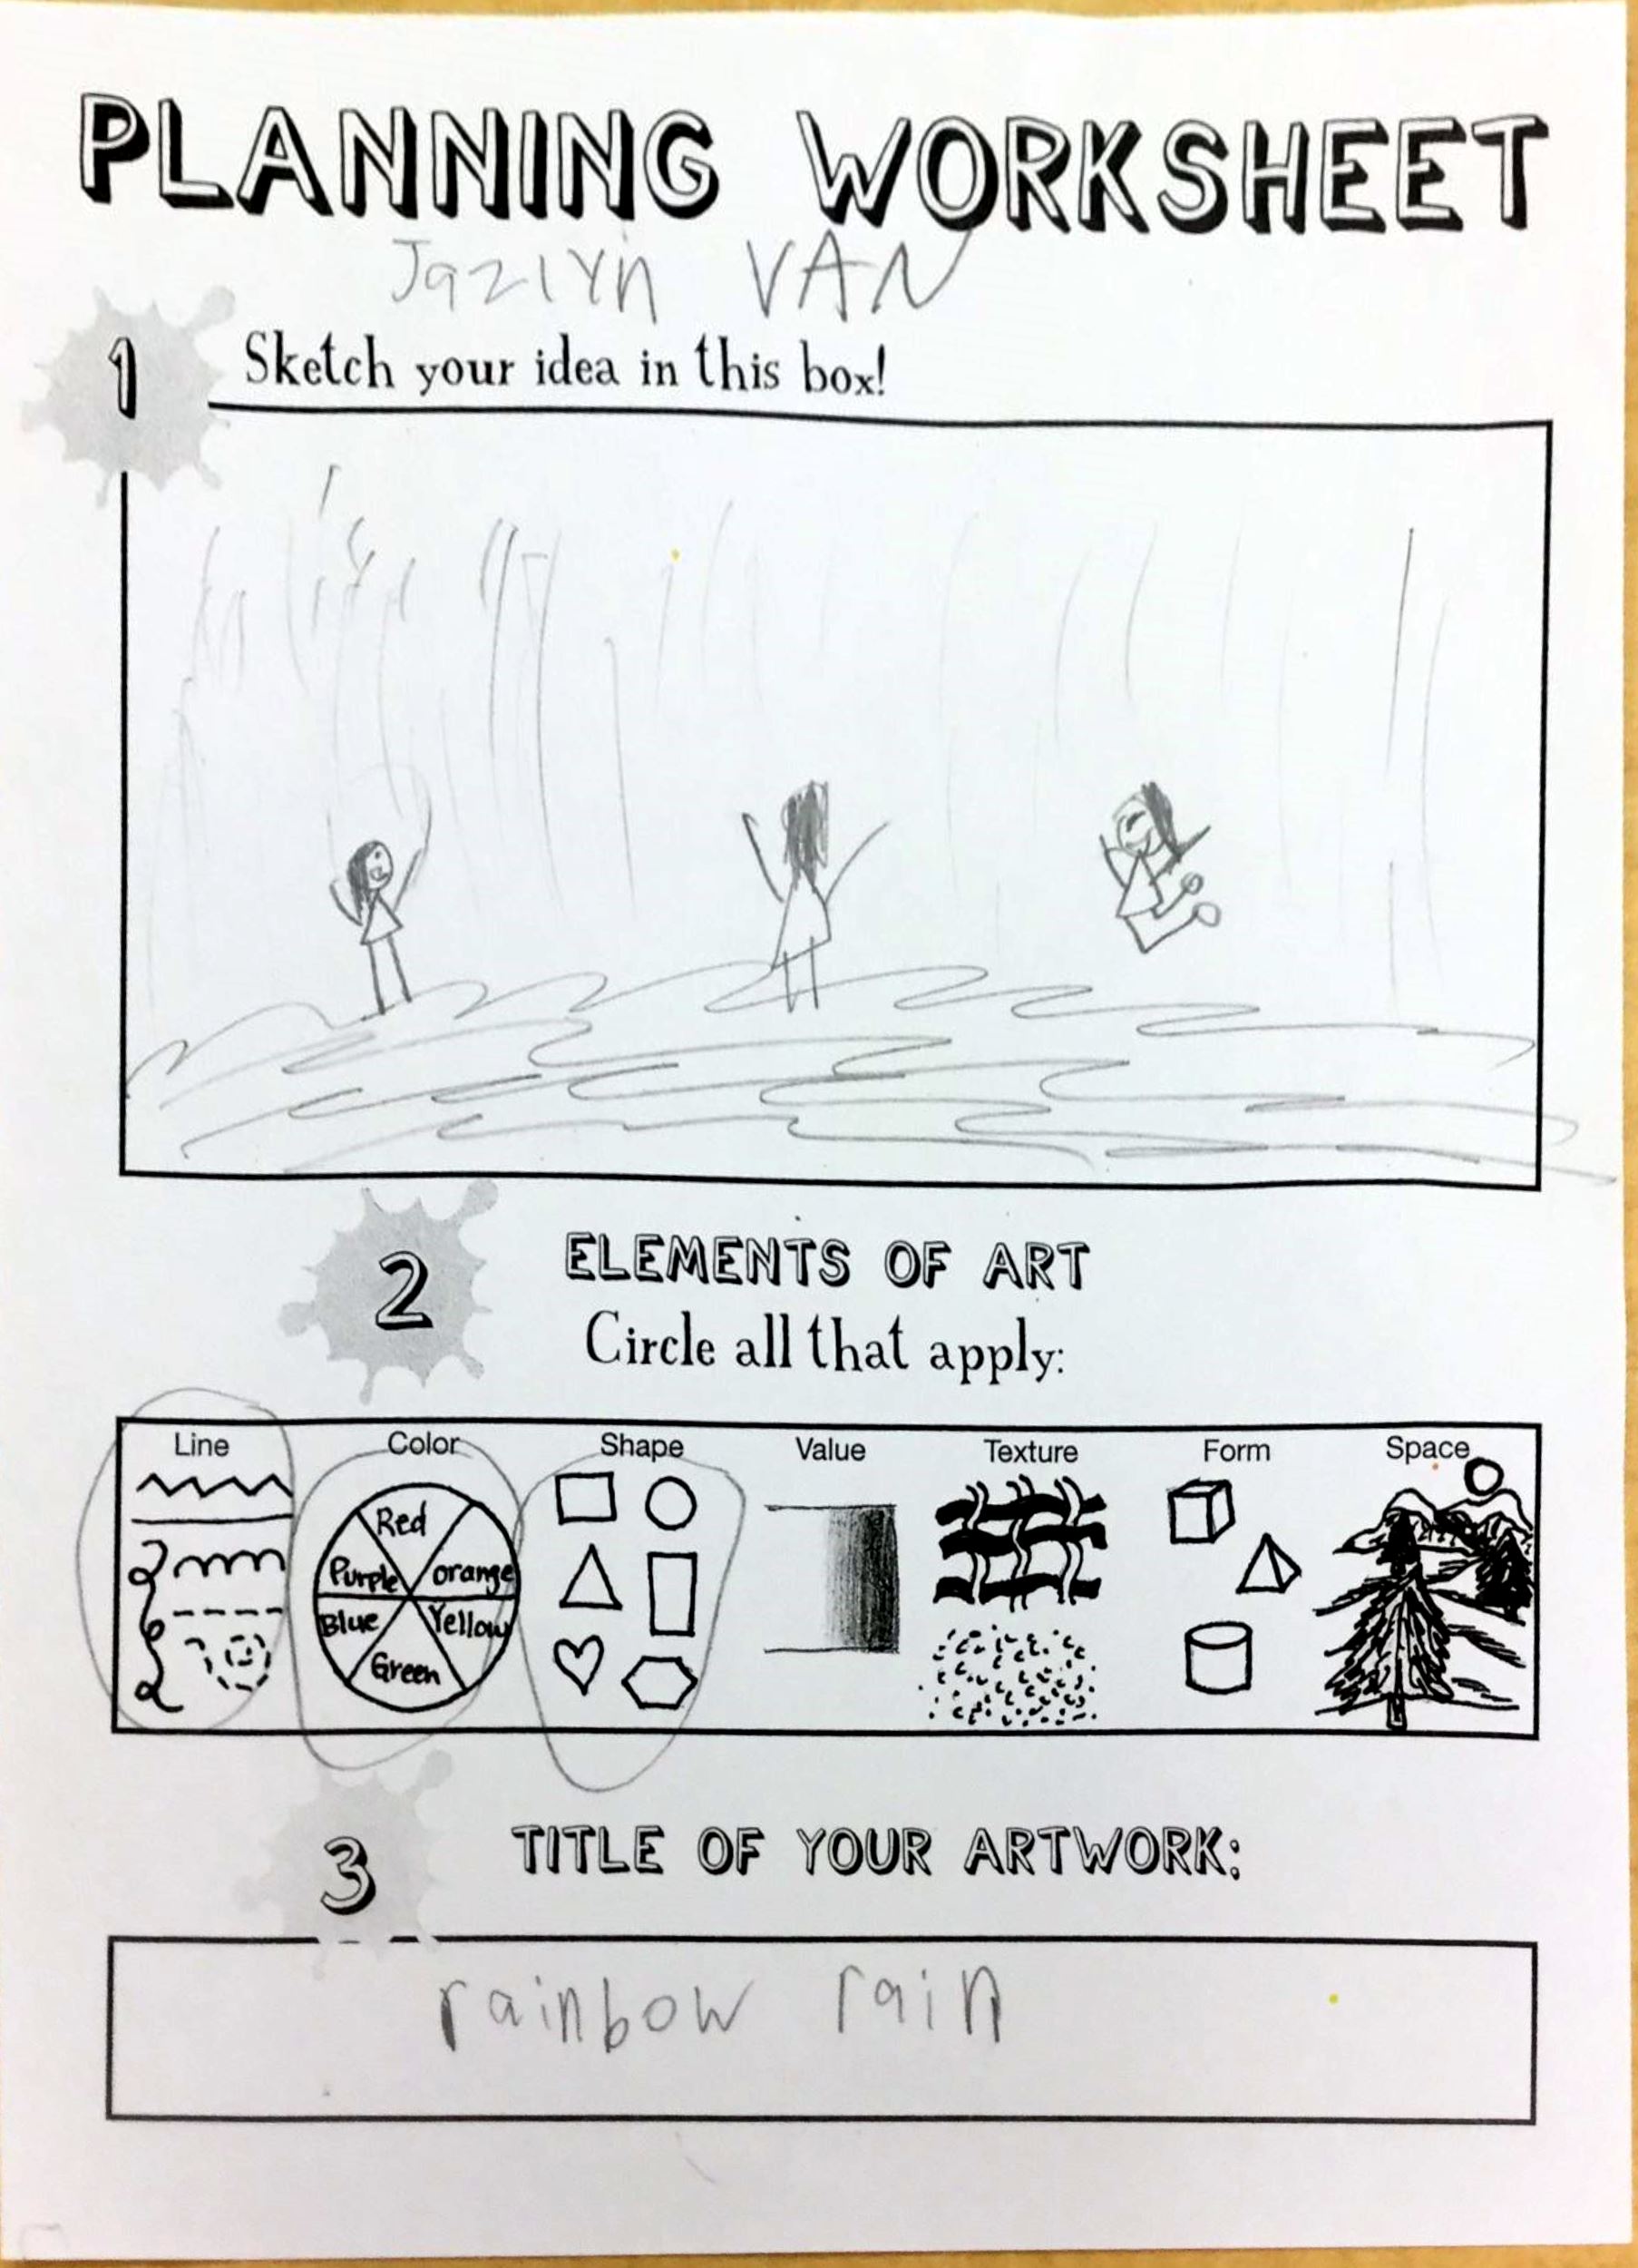 PLANNING WORKSHEET
Jazlyn VAN
1 Sketch your idea in this box!
2 ELEMENTS OF ART
Circle all that apply:
Line Color Shape Value Texture Form Space
Red
Purple orange
Blue Yellow
Green
3 TITLE OF YOUR ARTWORK:
rainbow rain